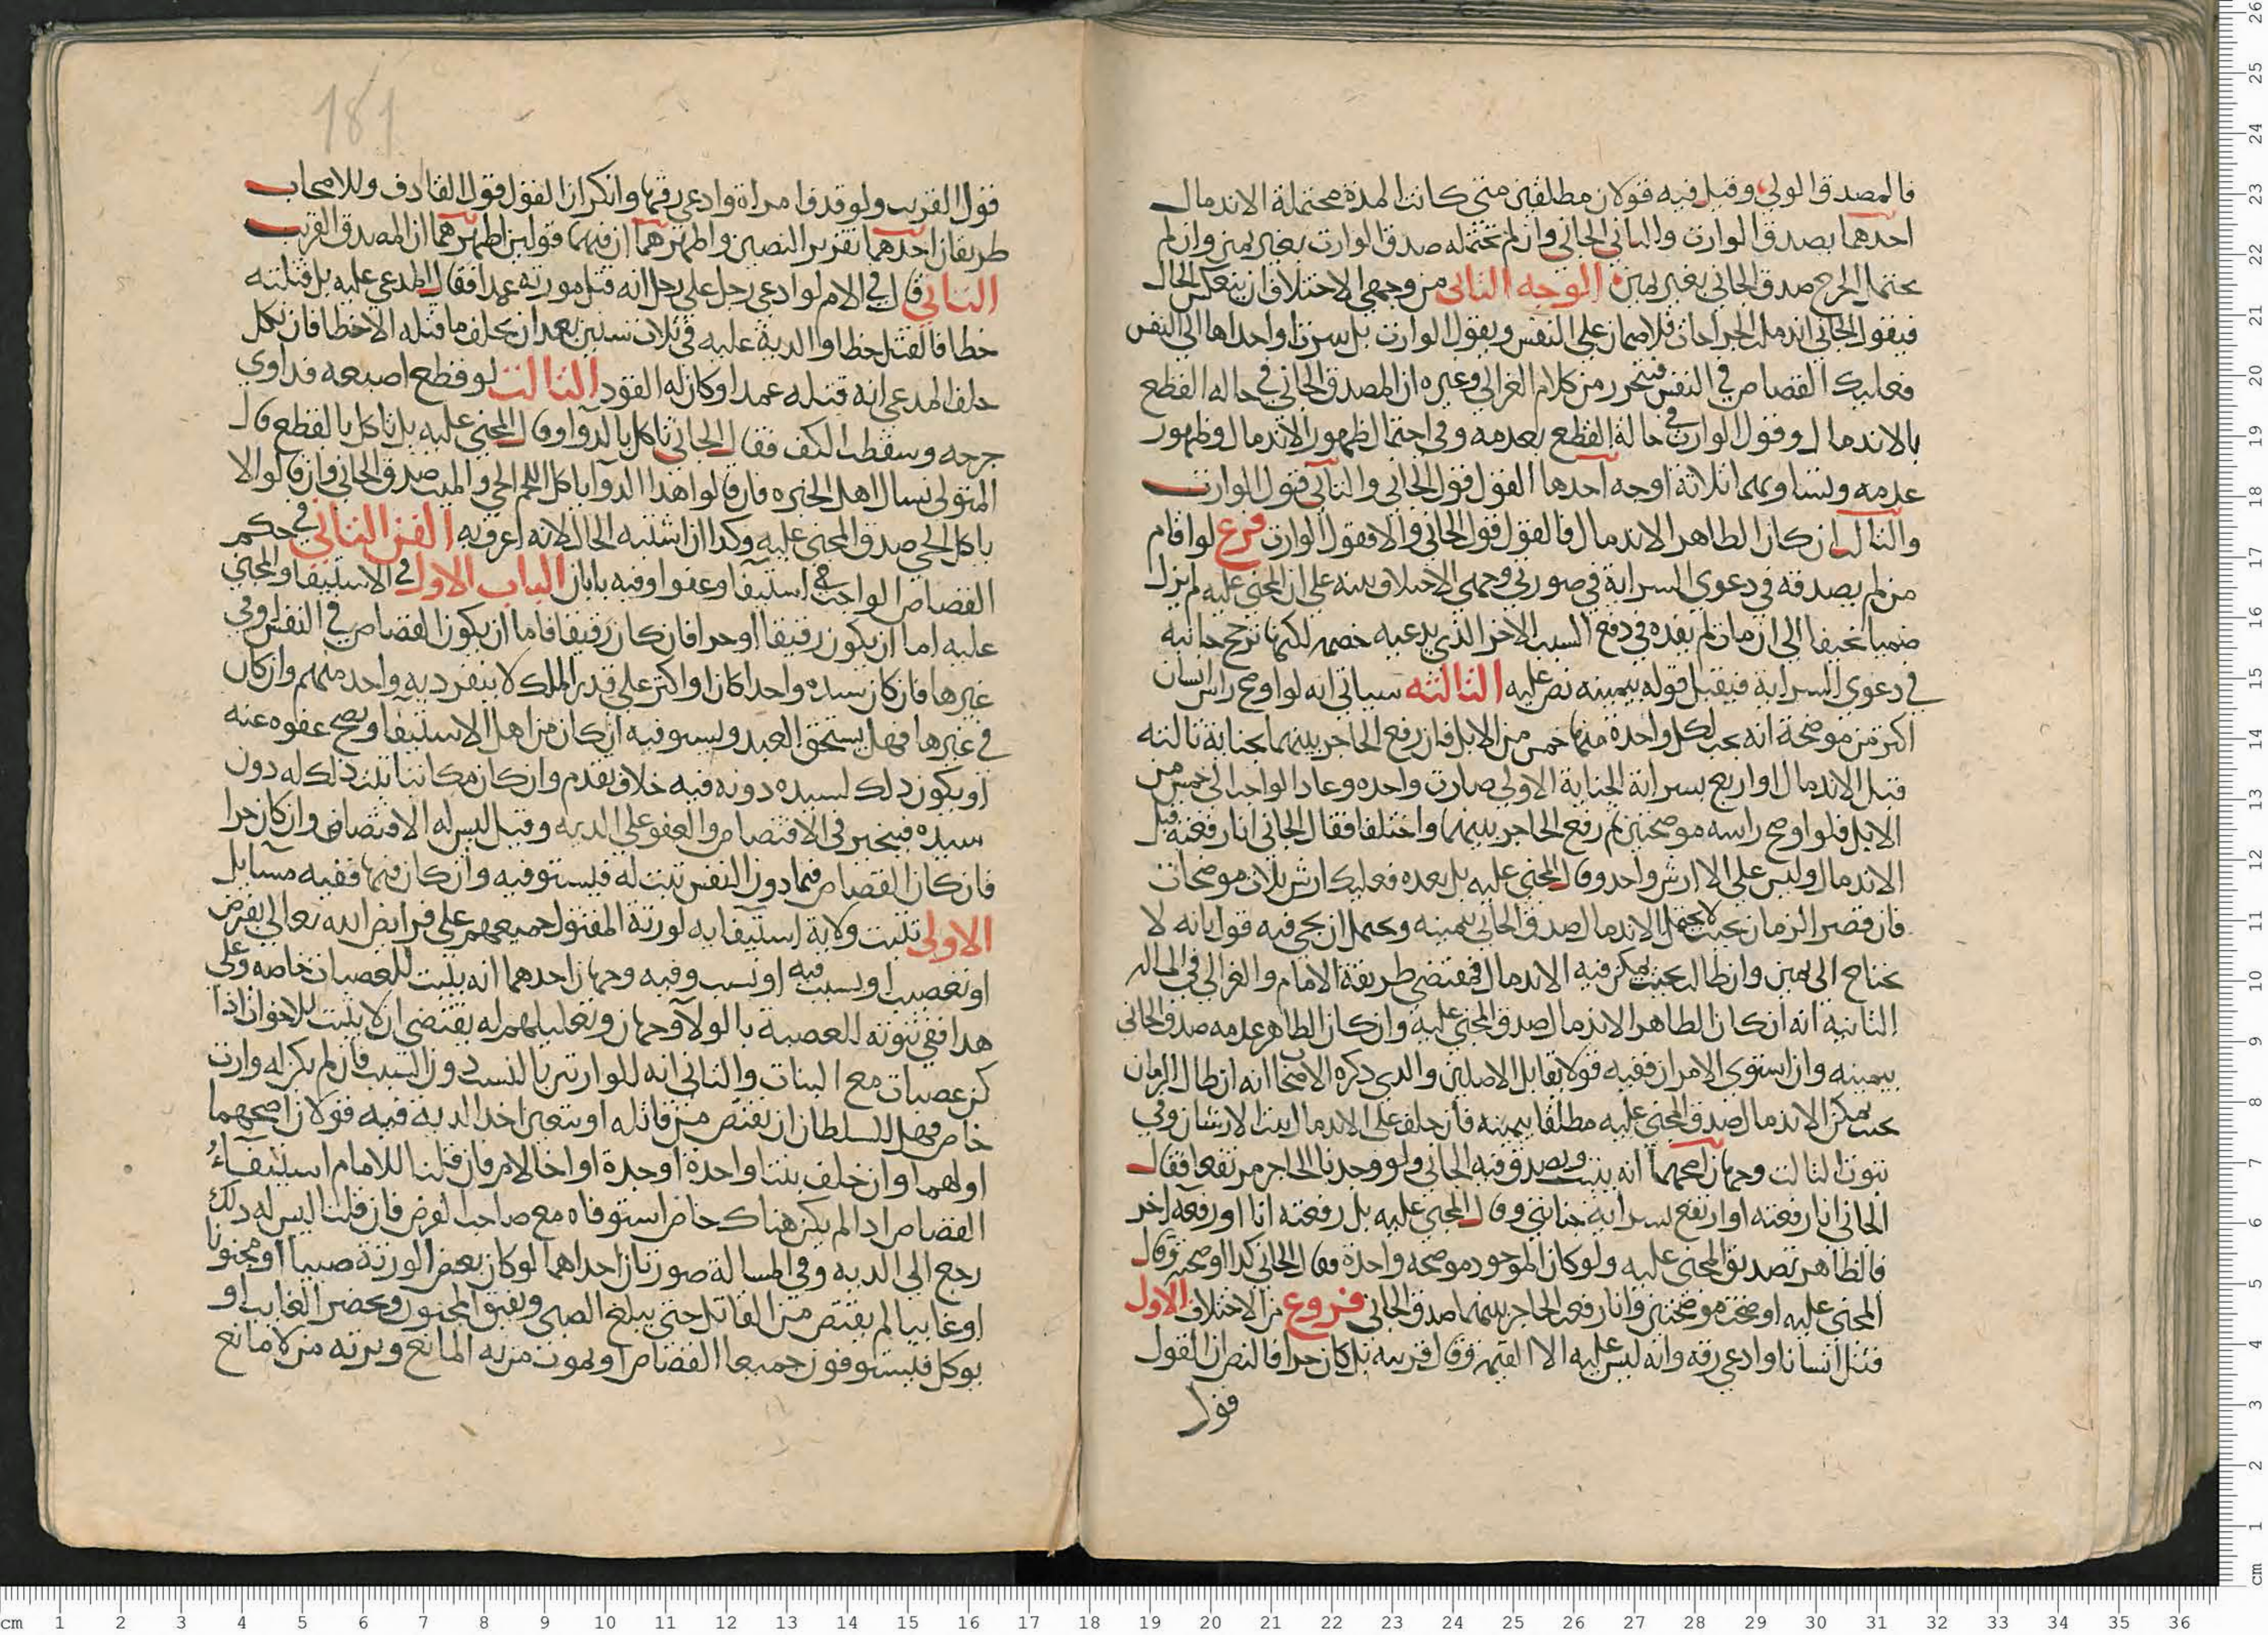 فالمصدق الولي وقيل فيه قولان مطلقين متى كانت المدة محتملة الاندمال
احدهما يصدق الوارث والثاني الجاني وان لم تحتمله صدق الوارث بغير يمين وان لم
يحتمل الجرح صدق الجاني بغير يمين الوجه الثاني من وجهي الاختلاف ان ينعكس الحال
فيقول الجاني اندملت الجراحات فلا ضمان علي النفس ويقول الوارث بل سرتا واحداها الى النفس
فعليك القصاص في النفس فيتحرر من كلام الغزالي وغيره ان المصدق الجاني في حاله القطع
بالاندمال وقول الوارث في حالة القطع بعدمه وفي احتمال ظهور الاندمال وظهور
عدمه وتساويهما ثلاثة اوجه احدها القول قول الجاني والثاني قول الوارث
والثالث ان كان الظاهر الاندمال فالقول قول الجاني والا فقول الوارث فرع لو اقام
من لم يصدقه في دعوى السراية في صورتي وجهي الاختلاف بينه على ان المجني عليه لم يزل
ضمنا نحيفا الى ان مات لم يفده في دفع السبب الاخر الذي يدعيه خصمه لكنها ترجح جانبه
في دعوى السراية فيقبل قوله بيمينه نص عليه الثالثه سياتي انه لو اوضح راس انسان
اكثر من موضحة انه يجب لكل واحدة منها خمس من الابل فان رفع الحاجز بينهما بجناية ثالثه
قبل الاندمال او ارتفع بسراية الجناية الاولى صارت واحده وعاد الواجب الى خمس من
الابل فلو اوضح راسه موضحتين ثم رفع الحاجز بينهما واختلفا فقال الجاني انا رفعته قبل
الاندمال وليس علي الا ارش واحد وقال المجني عليه بل بعده فعليك ارش ثلاث موضحات
فان قصر الزمان بحيث لا يحتمل الاندمال صدق الجاني بيمينه ويحتمل ان يجي فيه قول بانه لا
يحتاج الى يمين وان طال بحيث يمكن فيه الاندمال فمقتضى طريقة الامام والغزالي في المساله
الثانيه انه ان كان الظاهر الاندمال صدق المجني عليه وان كان الظاهر عدمه صدق الجاني
بيمينه وان استوى الامران ففيه قولا تقابل الاصلين والذي ذكره الاصحاب انه ان طال الزمان
بحيث يمكن الاندمال صدق المجني عليه مطلقا بيمينه فان حلف على الاندمال ثبت الارشان وفي
ثبوت الثالث وجهان اصحهما انه يثبت ويصدق فيه الجاني ولو وجدنا الحاجز مرتفعا فقال
الجاني انا رفعته او ارتفع بسراية جنايتي وقال المجني عليه بل رفعته انا او رفعه اخر
فالظاهر تصديق المجني عليه ولو كان الموجود موضحه واحدة فقال الجاني كذا اوضحته وقال
المجني عليه اوضحت موضحتين وانا رفعت الحاجز بينهما صدق الجاني فروع من الاختلاف الاول
قتل انسانا وادعى رقه وانه ليس عليه الا القيمة وقال قريبه بل كان حرا فالنص ان القول
قول
181
قول القريب ولو قذف امراة وادعى رقها وانكر ان القول قول القاذف وللاصحاب
طريقان احدهما تقرير النصين واظهرهما ان فيهما قولين اظهرهما ان المصدق القريب
الثاني قال في الام لو ادعى رجل على رجل انه قتل مورثه عمدا فقال المدعى عليه بل قتلته
خطا فالقتل خطا والدية عليه في ثلاث سنين بعد ان يحلف ما قتله الا خطا فان نكل
حلف المدعي انه قتله عمدا وكان له القود الثالث لو قطع اصبعه فداوى
جرحه وسقطت الكف فقال الجاني تاكل بالدوآ وقال المجني عليه بل تاكل بالقطع قال
المتولي نسال اهل الخبره فان قالوا هذا الدوآ ياكل اللحم الحي والميت صدق الجاني وان قالوا لا
ياكل الحي صدق المجني عليه وكذا ان اشتبه الحال لانه اعرف به الفن الثاني في حكم
القصاص الواجب في استيفا وعفو او فيه بابان الباب الاول في الاستيفا والمجني
عليه اما ان يكون رقيقا او حرا فان كان رقيقا فاما ان يكون القصاص في النفس او في
غيرها فان كان سيده واحدا كان او اكثر على قدر الملك لا ينفرد به واحد منهم وان كان
في غيرها فهل يستحق العبد ويستوفيه ان كان من اهل الاستيفآ ويصح عفوه عنه
او يكون ذلك لسيده دونه فيه خلاف تقدم وان كان مكاتبا ثبت ذلك له دون
سيده فيتخير في الاقتصاص والعفو على الديه وقيل ليس له الاقتصاص وان كان حرا
فان كان القصاص فيما دون النفس ثبت له فيستوفيه وان كان فيها ففيه مسايل
الاولى تثبت ولاية استيفآيه لورثة المقتول جميعهم على فرايض الله تعالى بفرض
او تعصيب او بسبب فيه او نسب وفيه وجهان احدهما انه يثبت للعصبات خاصه وعلى
هذا ففي ثبوته للعصبة بالولآ وجهان وتعليلهم له يقتضي ان لا يثبت للاخوات اذا
كن عصبات مع البنات والثاني انه للوارثين بالنسب دون السبب فان لم يكن له وارث
خاص فهل للسلطان ان يقتص من قاتله او يتعين اخذ الدية فيه قولان اصحهما
اولهما وان خلف بنتا واحدة او جدة او اخا لام فان قلنا للامام استيفآءُ
القصاص اذا لم يكن هناك خاص استوفاه مع صاحب الفرض فان قلنا ليس له ذلك
رجع الى الديه وفي المسالة صورتان احداهما لو كان بعض الورثة صبيا او مجنونا
او غايبا لم يقتص من القاتل حتى يبلغ الصبي ويفيق المجنون ويحضر الغايب او
يوكل فيستوفون جميعا القصاص او يموت من به المانع ويرثه من لا مانع